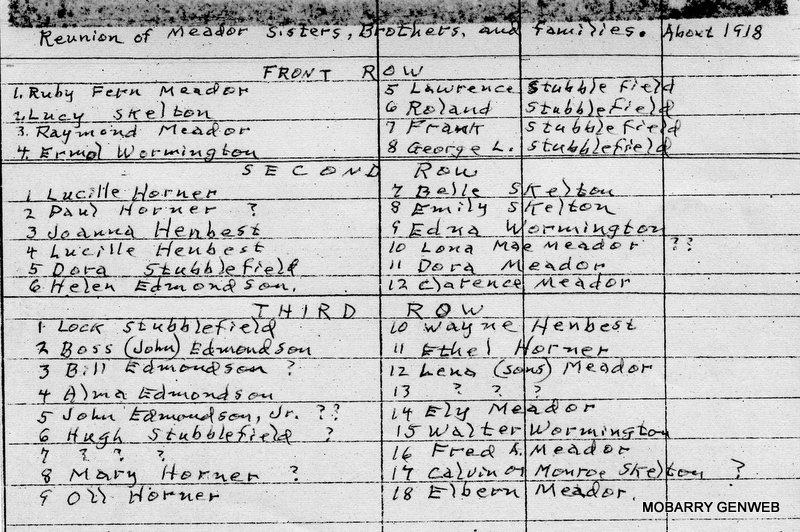 Reunion of Meador Sisters, Brothers, and families. About 1918
FRONT ROW
1. Ruby Fern Meador
2. Lucy Skelton
3. Raymond Meador
4. Ermol Wormington
5 Lawrence Stubblefield
6 Roland Stubblefield
7 Frank Stubblefield
8 George L. Stubblefield
SECOND ROW
1 Lucille Horner
2 Paul Horner ?
3 Joanna Henbest
4 Lucille Henbest
5 Dora Stubblefield
6 Helen Edmondson.
7 Belle Skelton
8 Emily Skelton
9 Edna Wormington
10 Lona Mae Meador ??
11 Dora Meador
12 Clarence Meador
THIRD ROW
1 Lock Stubblefield
2 Boss (John) Edmondson
3 Bill Edmondson ?
4 Alma Edmondson
5 John Edmondson, Jr. ??
6 Hugh Stubblefield ?
7 ? ? ?
8 Mary Horner ?
9 Oll Horner
10 Wayne Henbest
11 Ethel Horner
12 Lena (sons) Meador
13 ? ? ?
14 Ely Meador
15 Walter Wormington
16 Fred A. Meador
17 Calvin or Monroe Skelton ?
18 Elbern Meador.
MOBARRY GENWEB